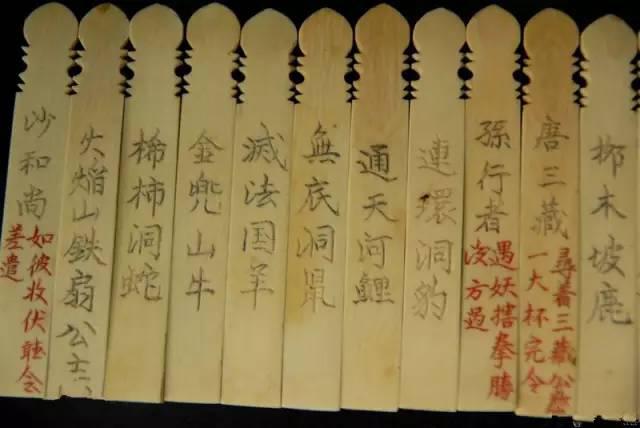 木坡鹿
唐三藏
尋著三藏公
一大杯完令
孫行者
遇妖搳拳勝
方過
連環洞豹
通天河鯉
無底洞鼠
滅法国羊
金兜山牛
柿洞蛇
火焔山鉄扇公主
沙和尚
如彼收伏聴令
差遣